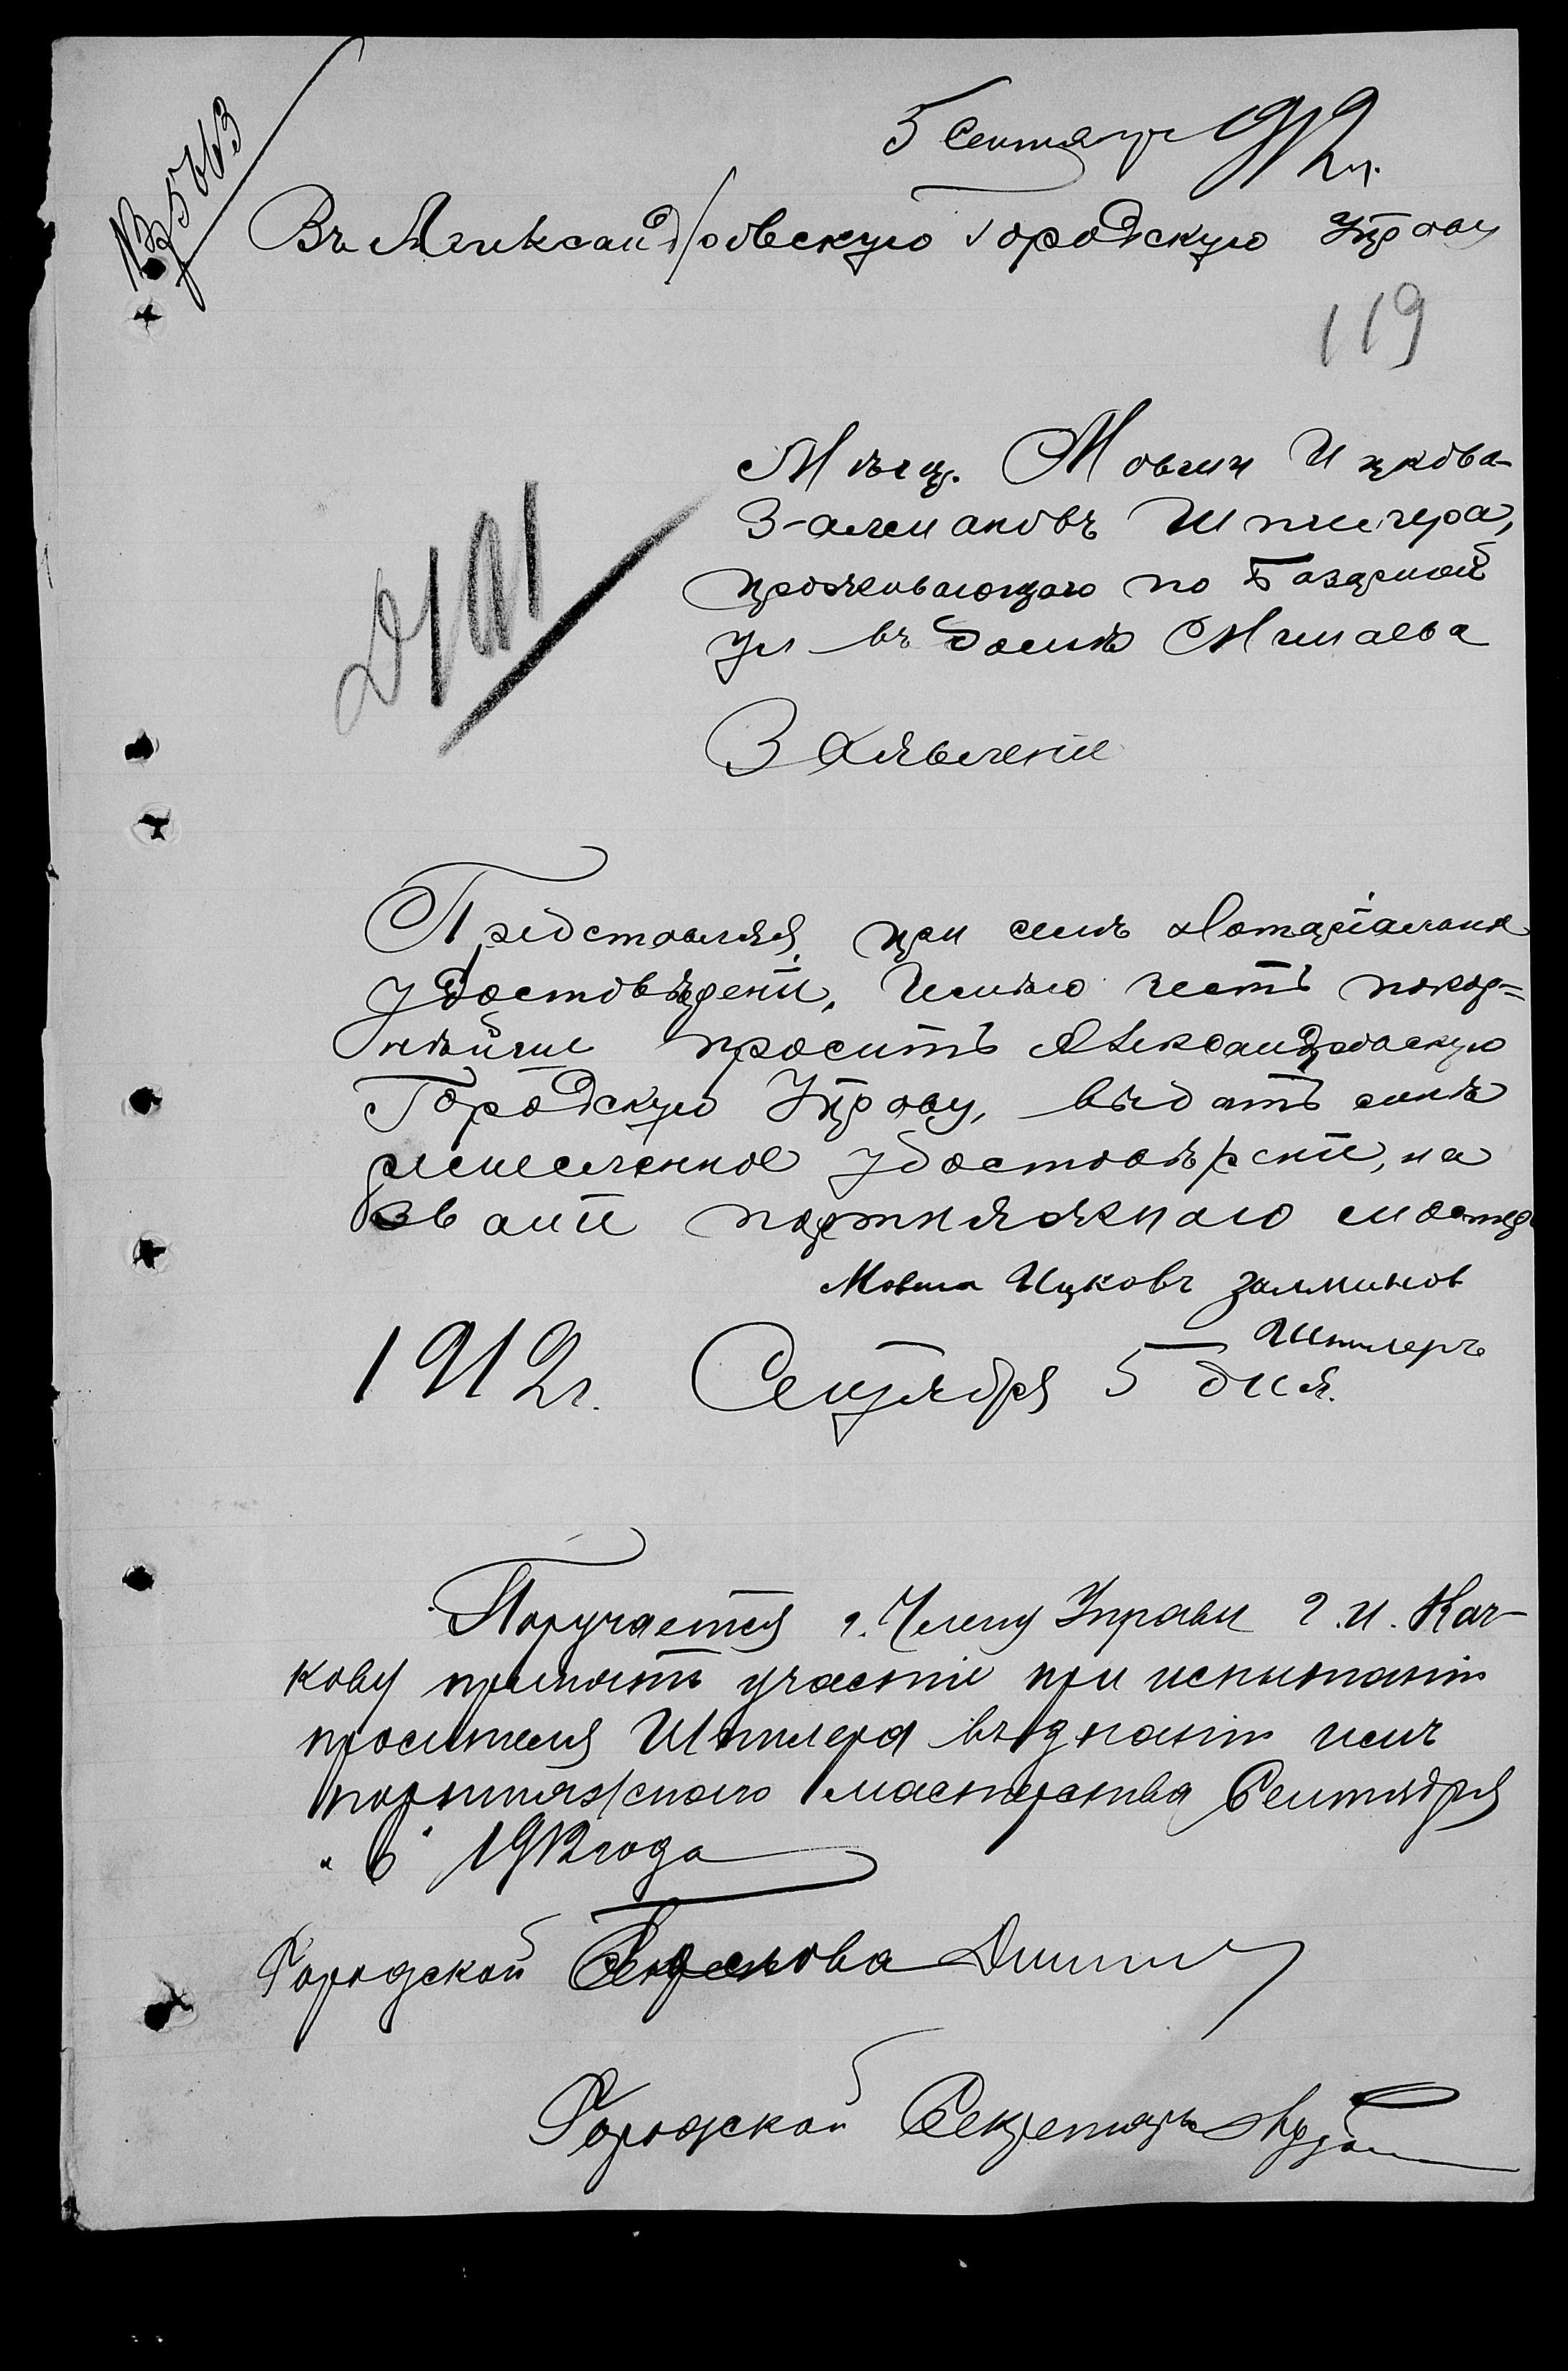 № 5663
5 Сентября 1912 г.
Въ Александровскую Городскую Управу
119
Мѣщ. Мовши Ицкова
Залмановъ Штиллера,
проживающаго по Базарной
ул въ домѣ Минаева
Заявленіе
Представляя при семъ Нотаріальная
удостовѣреніе, Имѣю честь покор=
нѣйше просить Александровскую
Городскую Управу, выдать мнѣ
ремесленное удостовѣреніе, на
званіе портняжнаго мастера
Мовша Ицковъ Залманов
Штиллеръ
1912 г. Сентября 5 дня.
Поручается г. Члену Управы Г. И. Кач-
кову принять участіе при испытаніи
просителя Штиллера въ знаніи имъ
портняжснаго мастерства Сентября
"6" 1912 года
Городской Голова
Городской Секретарь